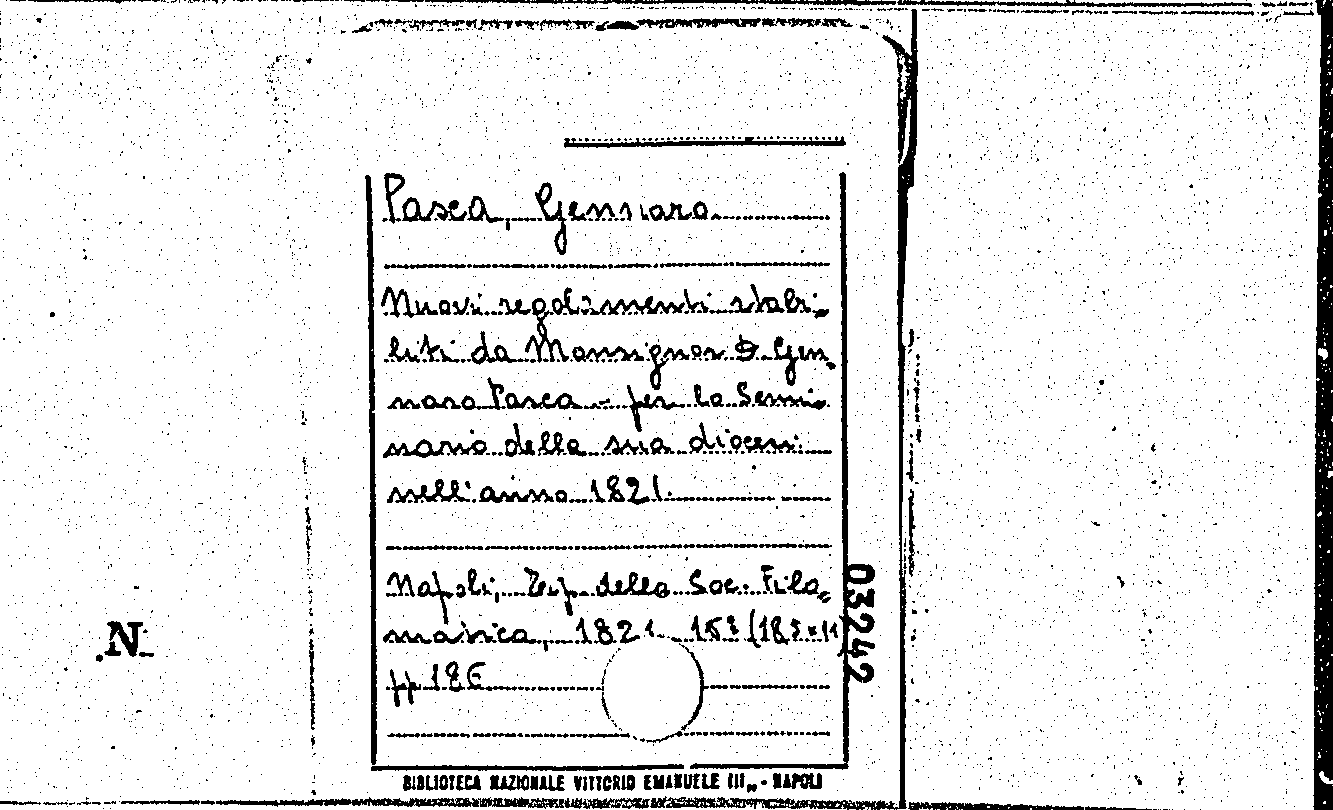 Pasca, Gennaro
Nuovi regolimenti stabi-
liti da Monsignor D. Gen-
naro Pasca - per lo Semi-
nario della sua diocesi
nell'anno 1821.
Napoli, Tip. della Soc. Filo-
matica, 1821 15º (18,5×11)
pp 186
03242
.N.
BIBLIOTECA NAZIONALE VITTORIO EMANUELE III„ - NAPOLI